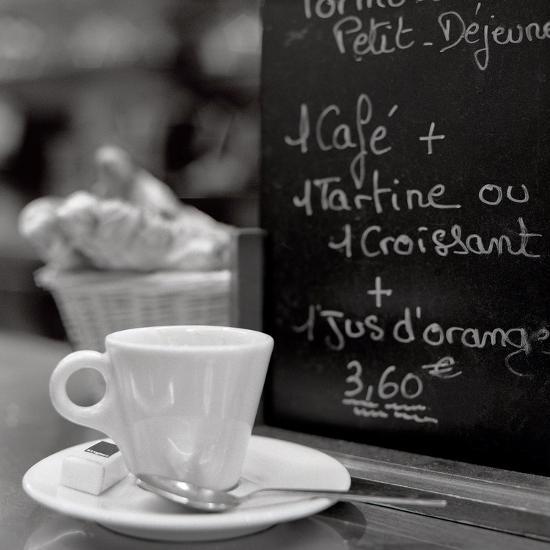 Petit-Déjeune
1 Café +
1 Tartine ou
1 Croissant
+
1 Jus d'orange
3,60 €